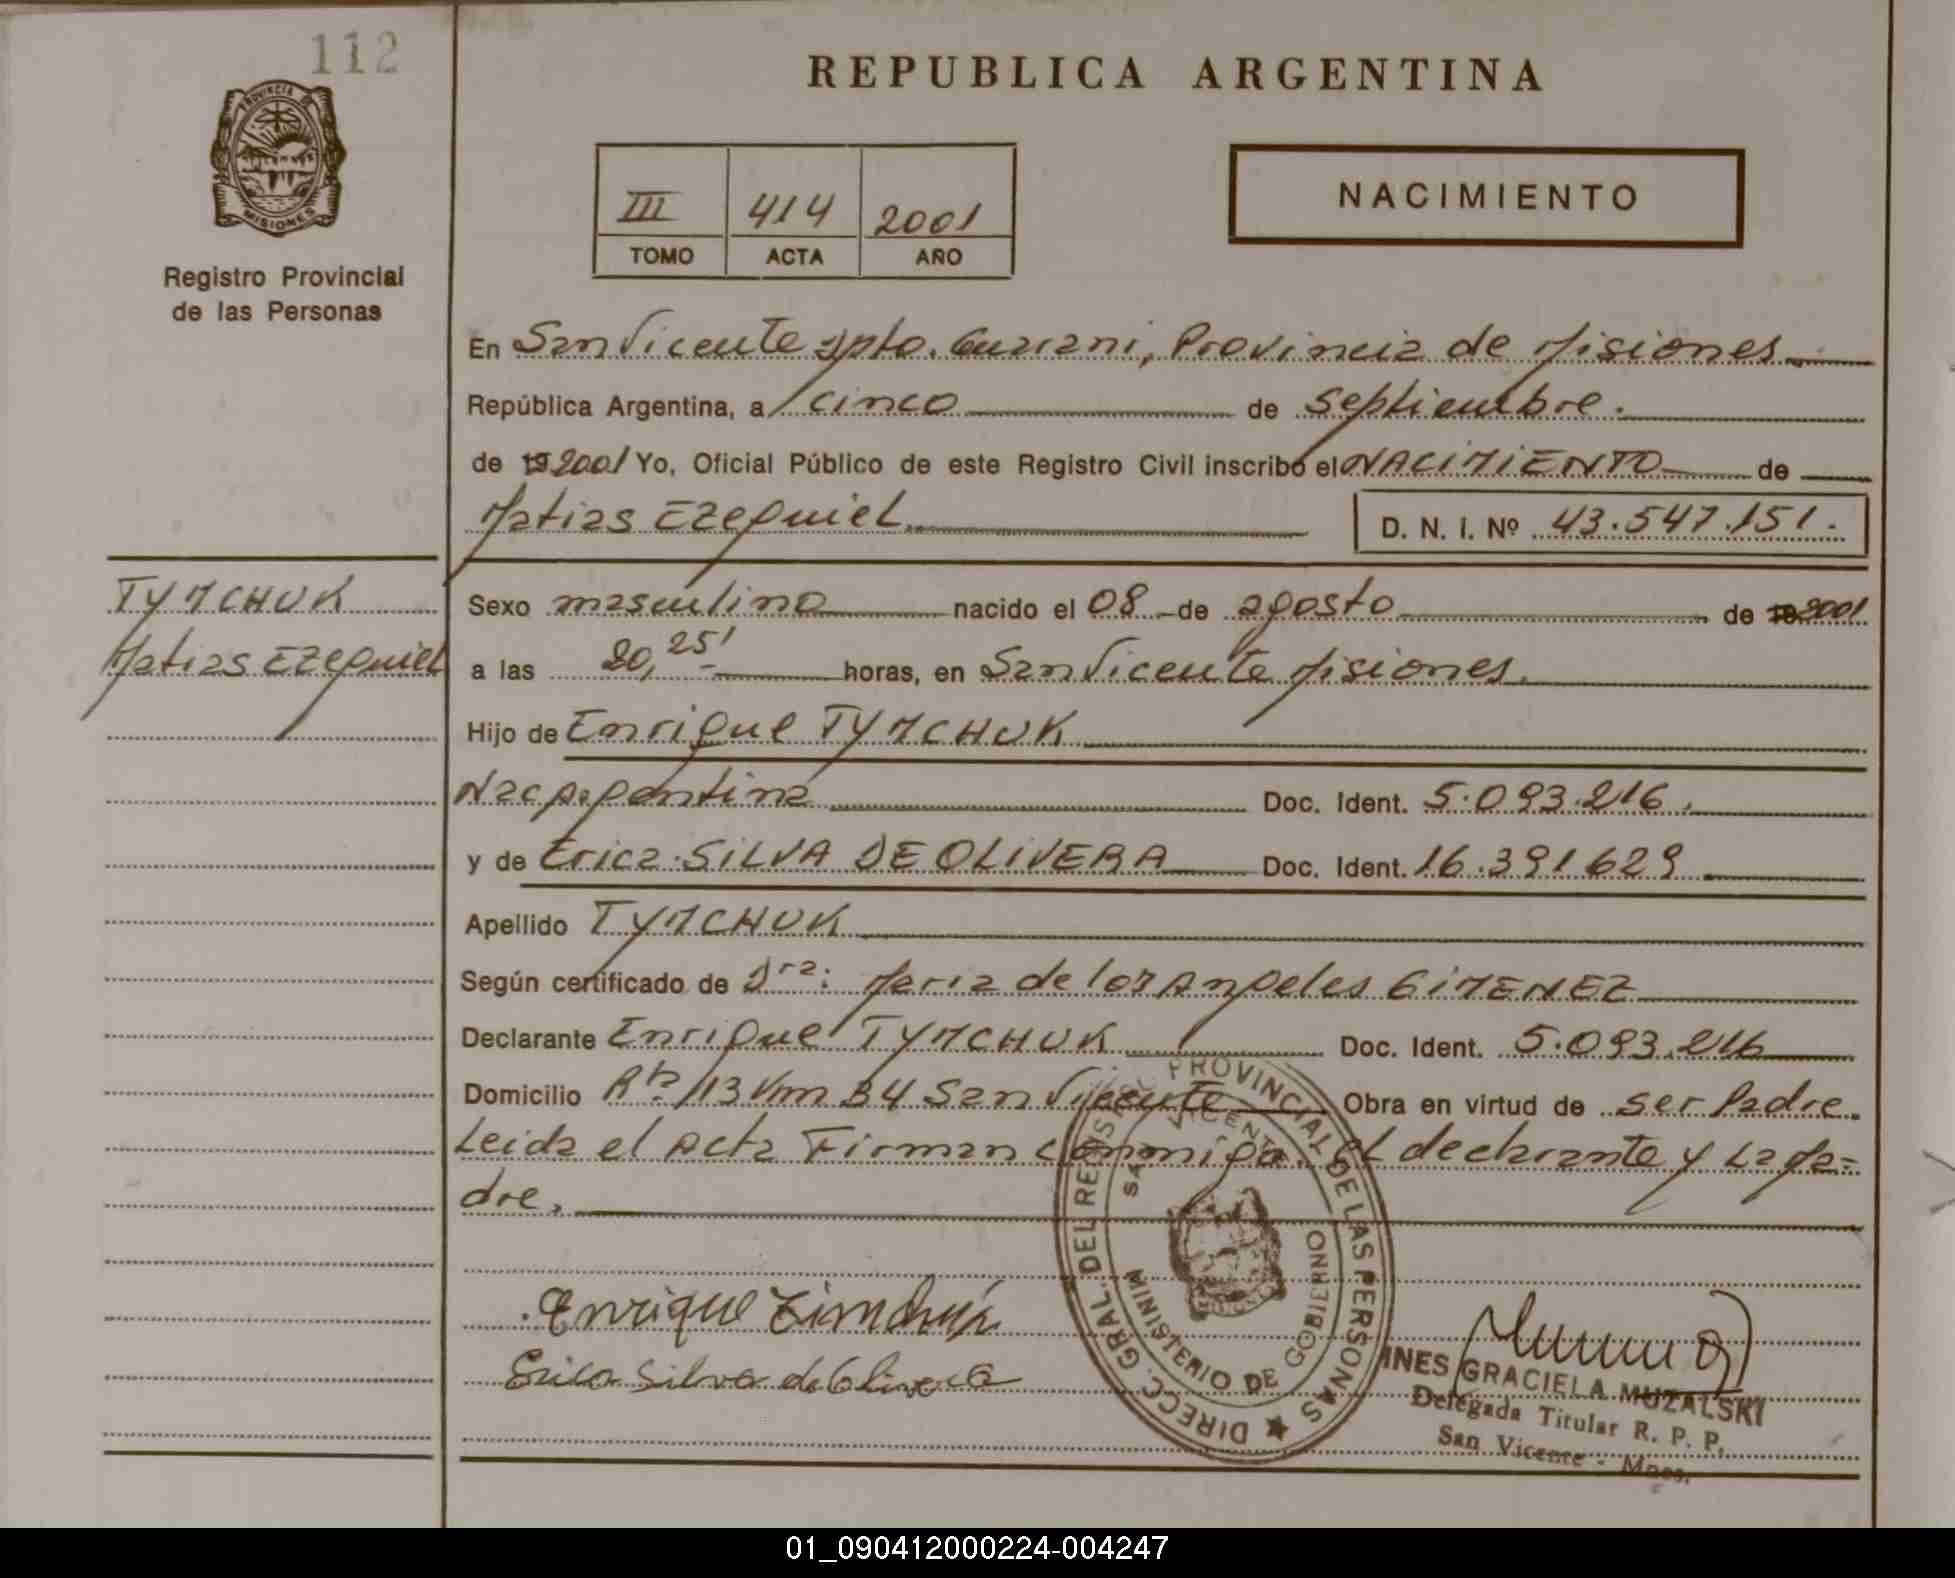 112
PROVINCIA DE
MISIONES
Registro Provincial
de las Personas
REPUBLICA ARGENTINA
III 414 2001
TOMO ACTA AÑO
NACIMIENTO
En San Vicente Dpto. Guarani, Provincia de Misiones
República Argentina, a cinco de septiembre.
de 19 2001 Yo, Oficial Público de este Registro Civil inscribo el NACIMIENTO de
Matias EZEquiEL D. N. I. Nº 43.547.151.
TYMCHUK
Matias EZEquiEL
Sexo masculino nacido el 08 de agosto de 19 2001
a las 20,25' horas, en San Vicente Misiones.
Hijo de Enrique TYMCHUK
Nac Argentina Doc. Ident. 5.093.216.
y de Erica SILVA DE OLIVERA Doc. Ident. 16.391629
Apellido TYMCHUK
Según certificado de Dra: Maria de los Angeles GIMENEZ
Declarante Enrique TYMCHUK Doc. Ident. 5.093.216
Domicilio Rta 13 Km 34 San Vicente Obra en virtud de ser Padre.
Leida el Acta Firman conmigo el declarante y La Ma=
dre.
Enrique Timchuk
Erica Silva de Olivera
DIRECC. GRAL. DEL REGIS PROVINCIAL DE LAS PERSONAS
SAN VICENTE
MINISTERIO DE GOBIERNO
MISIONES
INES GRACIELA MUZALSKI
Delegada Titular R. P. P.
San Vicente - Mnes.
01_090412000224-004247